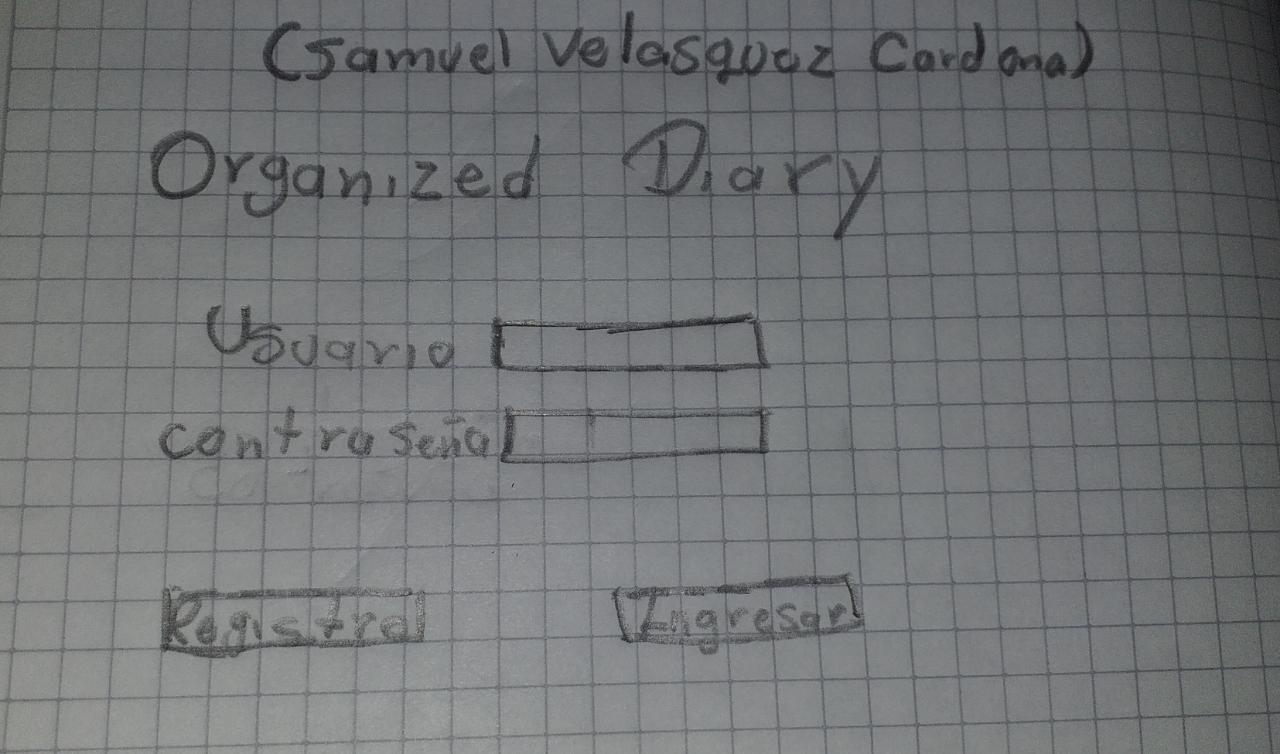 (Samuel Velasquez Cardona)
Organized Diary
Usuario
contraseña
Registro
Ingresar